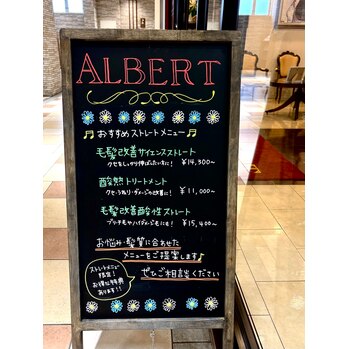 ALBERT
♫おすすめストレートメニュー♫
毛髪改善サイエンスストレート
クセをしっかり伸ばしたい方に! ¥14,300〜
酸熱トリートメント
クセ・うねり・ダメージの改善に! ¥11,000〜
毛髪改善酸性ストレート
ブリーチ毛やハイダメージ毛にも! ¥15,400〜
お悩み・髪質に合わせた
メニューをご提案します♪
ぜひご相談ください
ストレートメニュー
限定!
お得な特典
あります!!